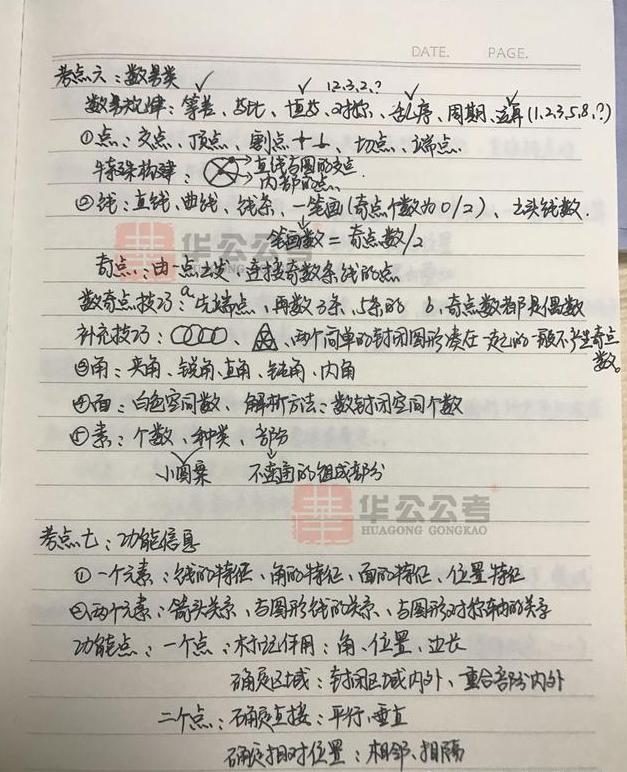 DATE. PAGE.
考点六：数量类
12,3,2,?
数量规律：等差、等比、恒等、对称、乱序、周期、运算(1,2,3,5,8,?)
①点：交点、顶点、割点、切点、端点.
特殊构建：直线与圆的交点
内部的点.
②线：直线、曲线、线条、一笔画(奇点个数为0/2)、出头线数.
笔画数=奇点数/2
奇点：由一点出发，连接奇数条线的点
数奇点技巧：a.先端点，再数3条、5条的 b.奇点数都是偶数
补充技巧：、两个简单的封闭图形凑在一起的一般不产生奇点
数。
③角：夹角、锐角、直角、钝角、内角
④面：白色空间数、解析方法：数封闭空间个数
⑤素：个数、种类、部分
小图案 不连通的组成部分
华公公考
HUAGONG GONGKAO
华公公考
HUAGONG GONGKAO
考点七：功能信息
①一个元素：线的特征、角的特征、面的特征、位置特征
②两个元素：箭头关系、与图形线的关系、与图形对称轴的关系
功能点：一个点：标记作用：角、位置、边长
确定区域：封闭区域内外、重合部分内外
二个点：确定直接：平行、垂直
确定相对位置：相邻、相隔